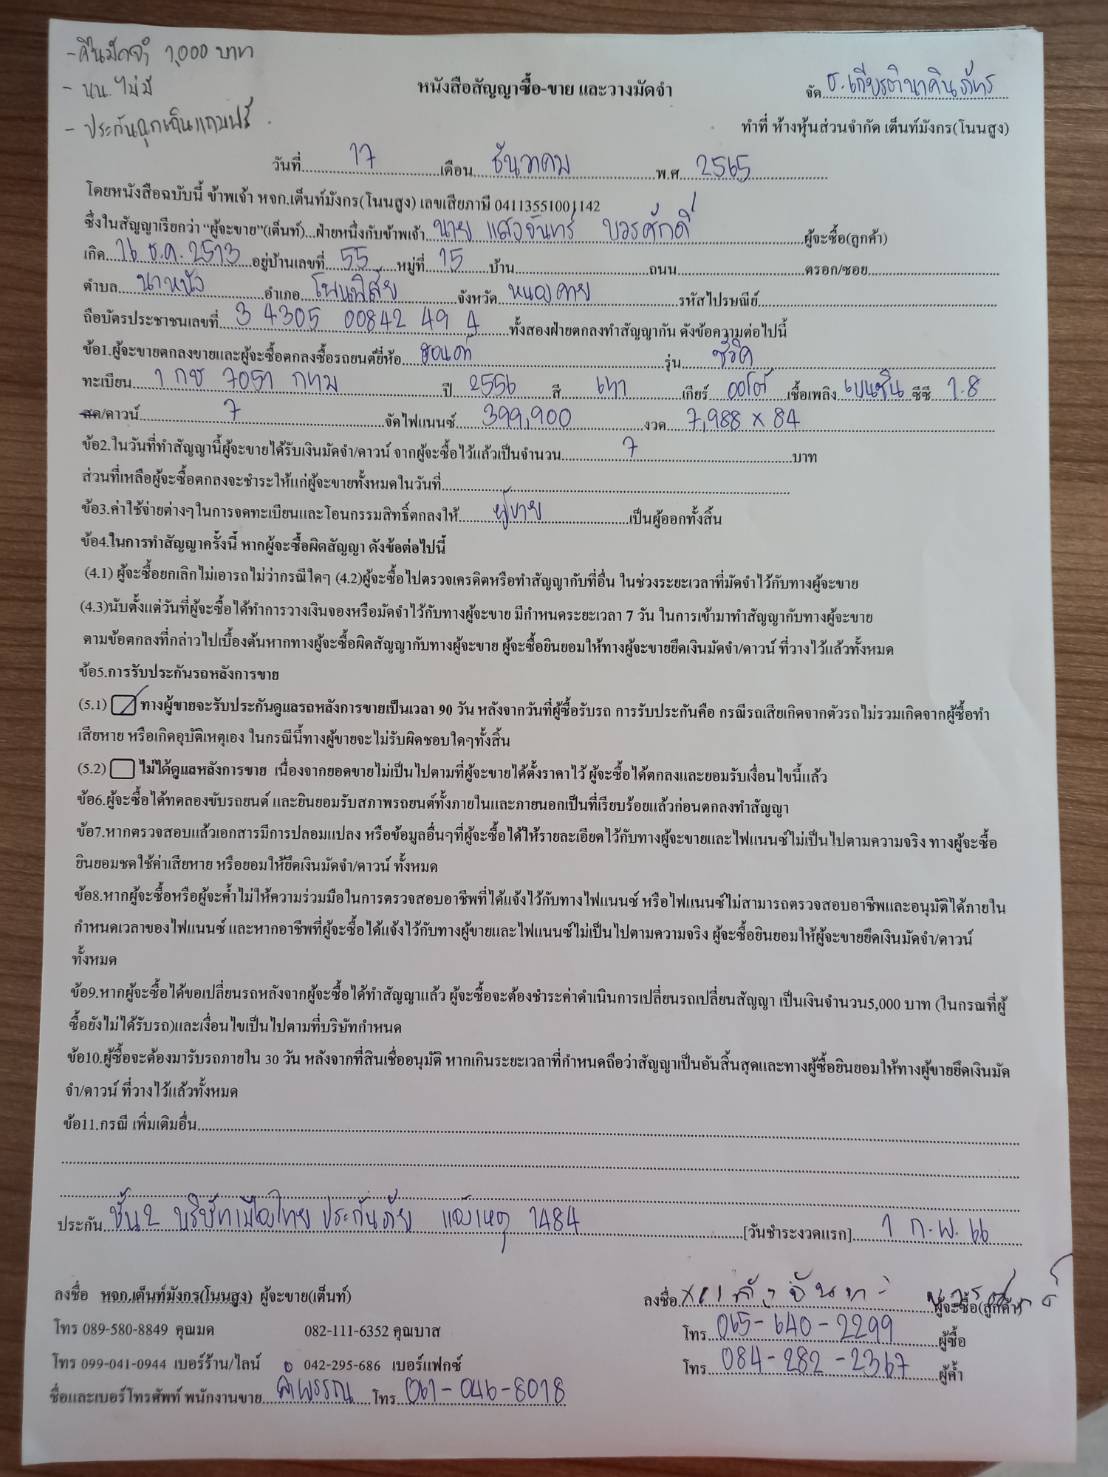 - คืนมัดจำ 1,000 บาท
- นน. ไม่มี
- ประกันฉุกเฉินแถมฟรี
หนังสือสัญญาซื้อ-ขาย และวางมัดจำ
จัด ธ.เกียรตินาคินภัทร
ทำที่ ห้างหุ้นส่วนจำกัด เต็นท์มังกร(โนนสูง)
วันที่ 17 เดือน ธันวาคม พ.ศ. 2565
โดยหนังสือฉบับนี้ ข้าพเจ้า หจก.เต็นท์มังกร(โนนสูง) เลขเสียภาษี 04113551001142
ซึ่งในสัญญาเรียกว่า "ผู้จะขาย"(เต็นท์)...ฝ่ายหนึ่งกับข้าพเจ้า นาย แสงจันทร์ บวรศักดิ์ ผู้จะซื้อ(ลูกค้า)
เกิด 16 ธ.ค. 2513 อยู่บ้านเลขที่ 55 หมู่ที่ 15 บ้าน ถนน ตรอก/ซอย
ตำบล นาหนัง อำเภอ โพนพิสัย จังหวัด หนองคาย รหัสไปรษณีย์
ถือบัตรประชาชนเลขที่ 3 4305 00842 49 4 ทั้งสองฝ่ายตกลงทำสัญญากัน ดังข้อความต่อไปนี้
ข้อ1.ผู้จะขายตกลงขายและผู้จะซื้อตกลงซื้อรถยนต์ยี่ห้อ ฮอนด้า รุ่น ซีวิค
ทะเบียน 1 กช 7051 กทม ปี 2556 สี เทา เกียร์ ออโต้ เชื้อเพลิง เบนซิน ซีซี 1.8
สด/ดาวน์ 7 จัดไฟแนนซ์ 399,900 งวด 7,988 x 84
ข้อ2.ในวันที่ทำสัญญานี้ผู้จะขายได้รับเงินมัดจำ/ดาวน์ จากผู้จะซื้อไว้แล้วเป็นจำนวน 7 บาท
ส่วนที่เหลือผู้จะซื้อตกลงจะชำระให้แก่ผู้จะขายทั้งหมดในวันที่
ข้อ3.ค่าใช้จ่ายต่างๆในการจดทะเบียนและโอนกรรมสิทธิ์ตกลงให้ ผู้ขาย เป็นผู้ออกทั้งสิ้น
ข้อ4.ในการทำสัญญาครั้งนี้ หากผู้จะซื้อผิดสัญญา ดังข้อต่อไปนี้
(4.1) ผู้จะซื้อยกเลิกไม่เอารถไม่ว่ากรณีใดๆ (4.2)ผู้จะซื้อไปตรวจเครดิตหรือทำสัญญากับที่อื่น ในช่วงระยะเวลาที่มัดจำไว้กับทางผู้จะขาย
(4.3)นับตั้งแต่วันที่ผู้จะซื้อได้ทำการวางเงินจองหรือมัดจำไว้กับทางผู้จะขาย มีกำหนดระยะเวลา 7 วัน ในการเข้ามาทำสัญญากับทางผู้จะขาย
ตามข้อตกลงที่กล่าวไปเบื้องต้นหากทางผู้จะซื้อผิดสัญญากับทางผู้จะขาย ผู้จะซื้อยินยอมให้ทางผู้จะขายยึดเงินมัดจำ/ดาวน์ ที่วางไว้แล้วทั้งหมด
ข้อ5.การรับประกันรถหลังการขาย
(5.1) ทางผู้ขายจะรับประกันดูแลรถหลังการขายเป็นเวลา 90 วัน หลังจากวันที่ผู้ซื้อรับรถ การรับประกันคือ กรณีรถเสียเกิดจากตัวรถไม่รวมเกิดจากผู้ซื้อทำ
เสียหาย หรือเกิดอุบัติเหตุเอง ในกรณีนี้ทางผู้ขายจะไม่รับผิดชอบใดๆทั้งสิ้น
(5.2) ไม่ได้ดูแลหลังการขาย เนื่องจากยอดขายไม่เป็นไปตามที่ผู้จะขายได้ตั้งราคาไว้ ผู้จะซื้อได้ตกลงและยอมรับเงื่อนไขนี้แล้ว
ข้อ6.ผู้จะซื้อได้ทดลองขับรถยนต์ และยินยอมรับสภาพรถยนต์ทั้งภายในและภายนอกเป็นที่เรียบร้อยแล้วก่อนตกลงทำสัญญา
ข้อ7.หากตรวจสอบแล้วเอกสารมีการปลอมแปลง หรือข้อมูลอื่นๆที่ผู้จะซื้อได้ให้รายละเอียดไว้กับทางผู้จะขายและไฟแนนซ์ไม่เป็นไปตามความจริง ทางผู้จะซื้อ
ยินยอมชดใช้ค่าเสียหาย หรือยอมให้ยึดเงินมัดจำ/ดาวน์ ทั้งหมด
ข้อ8.หากผู้จะซื้อหรือผู้จะค้ำไม่ให้ความร่วมมือในการตรวจสอบอาชีพที่ได้แจ้งไว้กับทางไฟแนนซ์ หรือไฟแนนซ์ไม่สามารถตรวจสอบอาชีพและอนุมัติได้ภายใน
กำหนดเวลาของไฟแนนซ์ และหากอาชีพที่ผู้จะซื้อได้แจ้งไว้กับทางผู้ขายและไฟแนนซ์ไม่เป็นไปตามความจริง ผู้จะซื้อยินยอมให้ผู้จะขายยึดเงินมัดจำ/ดาวน์
ทั้งหมด
ข้อ9.หากผู้จะซื้อได้ขอเปลี่ยนรถหลังจากผู้จะซื้อได้ทำสัญญาแล้ว ผู้จะซื้อจะต้องชำระค่าดำเนินการเปลี่ยนรถเปลี่ยนสัญญา เป็นเงินจำนวน5,000 บาท (ในกรณที่ผู้
ซื้อยังไม่ได้รับรถ)และเงื่อนไขเป็นไปตามที่บริษัทกำหนด
ข้อ10.ผู้ซื้อจะต้องมารับรถภายใน 30 วัน หลังจากที่สินเชื่ออนุมัติ หากเกินระยะเวลาที่กำหนดถือว่าสัญญาเป็นอันสิ้นสุดและทางผู้ซื้อยินยอมให้ทางผู้ขายยึดเงินมัด
จำ/ดาวน์ ที่วางไว้แล้วทั้งหมด
ข้อ11.กรณี เพิ่มเติมอื่น
ประกัน ชั้น2 บริษัทเมืองไทย ประกันภัย แจ้งเหตุ 1484 [วันชำระงวดแรก] 1 ก.พ. 66
ลงชื่อ หจก.เต็นท์มังกร(โนนสูง) ผู้จะขาย(เต็นท์) ลงชื่อ ผู้จะซื้อ(ลูกค้า)
โทร 089-580-8849 คุณมด 082-111-6352 คุณบาส โทร 065-640-2299 ผู้ซื้อ
โทร 099-041-0944 เบอร์ร้าน/ไลน์ 042-295-686 เบอร์แฟกซ์ โทร 084-282-2367 ผู้ค้ำ
ชื่อและเบอร์โทรศัพท์ พนักงานขาย คำพรรณ โทร 061-046-8018